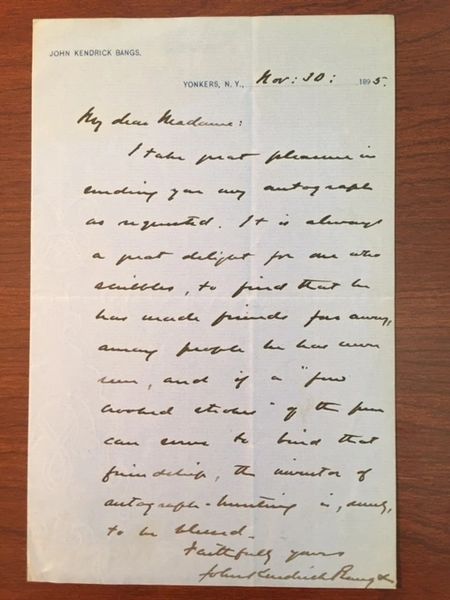 JOHN KENDRICK BANGS.
YONKERS, N. Y., Nov: 30: 1895.
My dear Madame:
I take great pleasure in
sending you my autograph
as requested. It is always
a great delight for one who
scribbles, to find that he
has made friends far away,
among people he has never
seen, and if a "few
crooked strokes" of the pen
can serve to bind that
friendship, the inventor of
autograph-hunting is, surely,
to be blessed.
Faithfully yours
John Kendrick Bangs